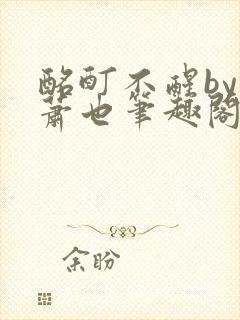 酩酊不醒by
萧也笔趣阁
余盼